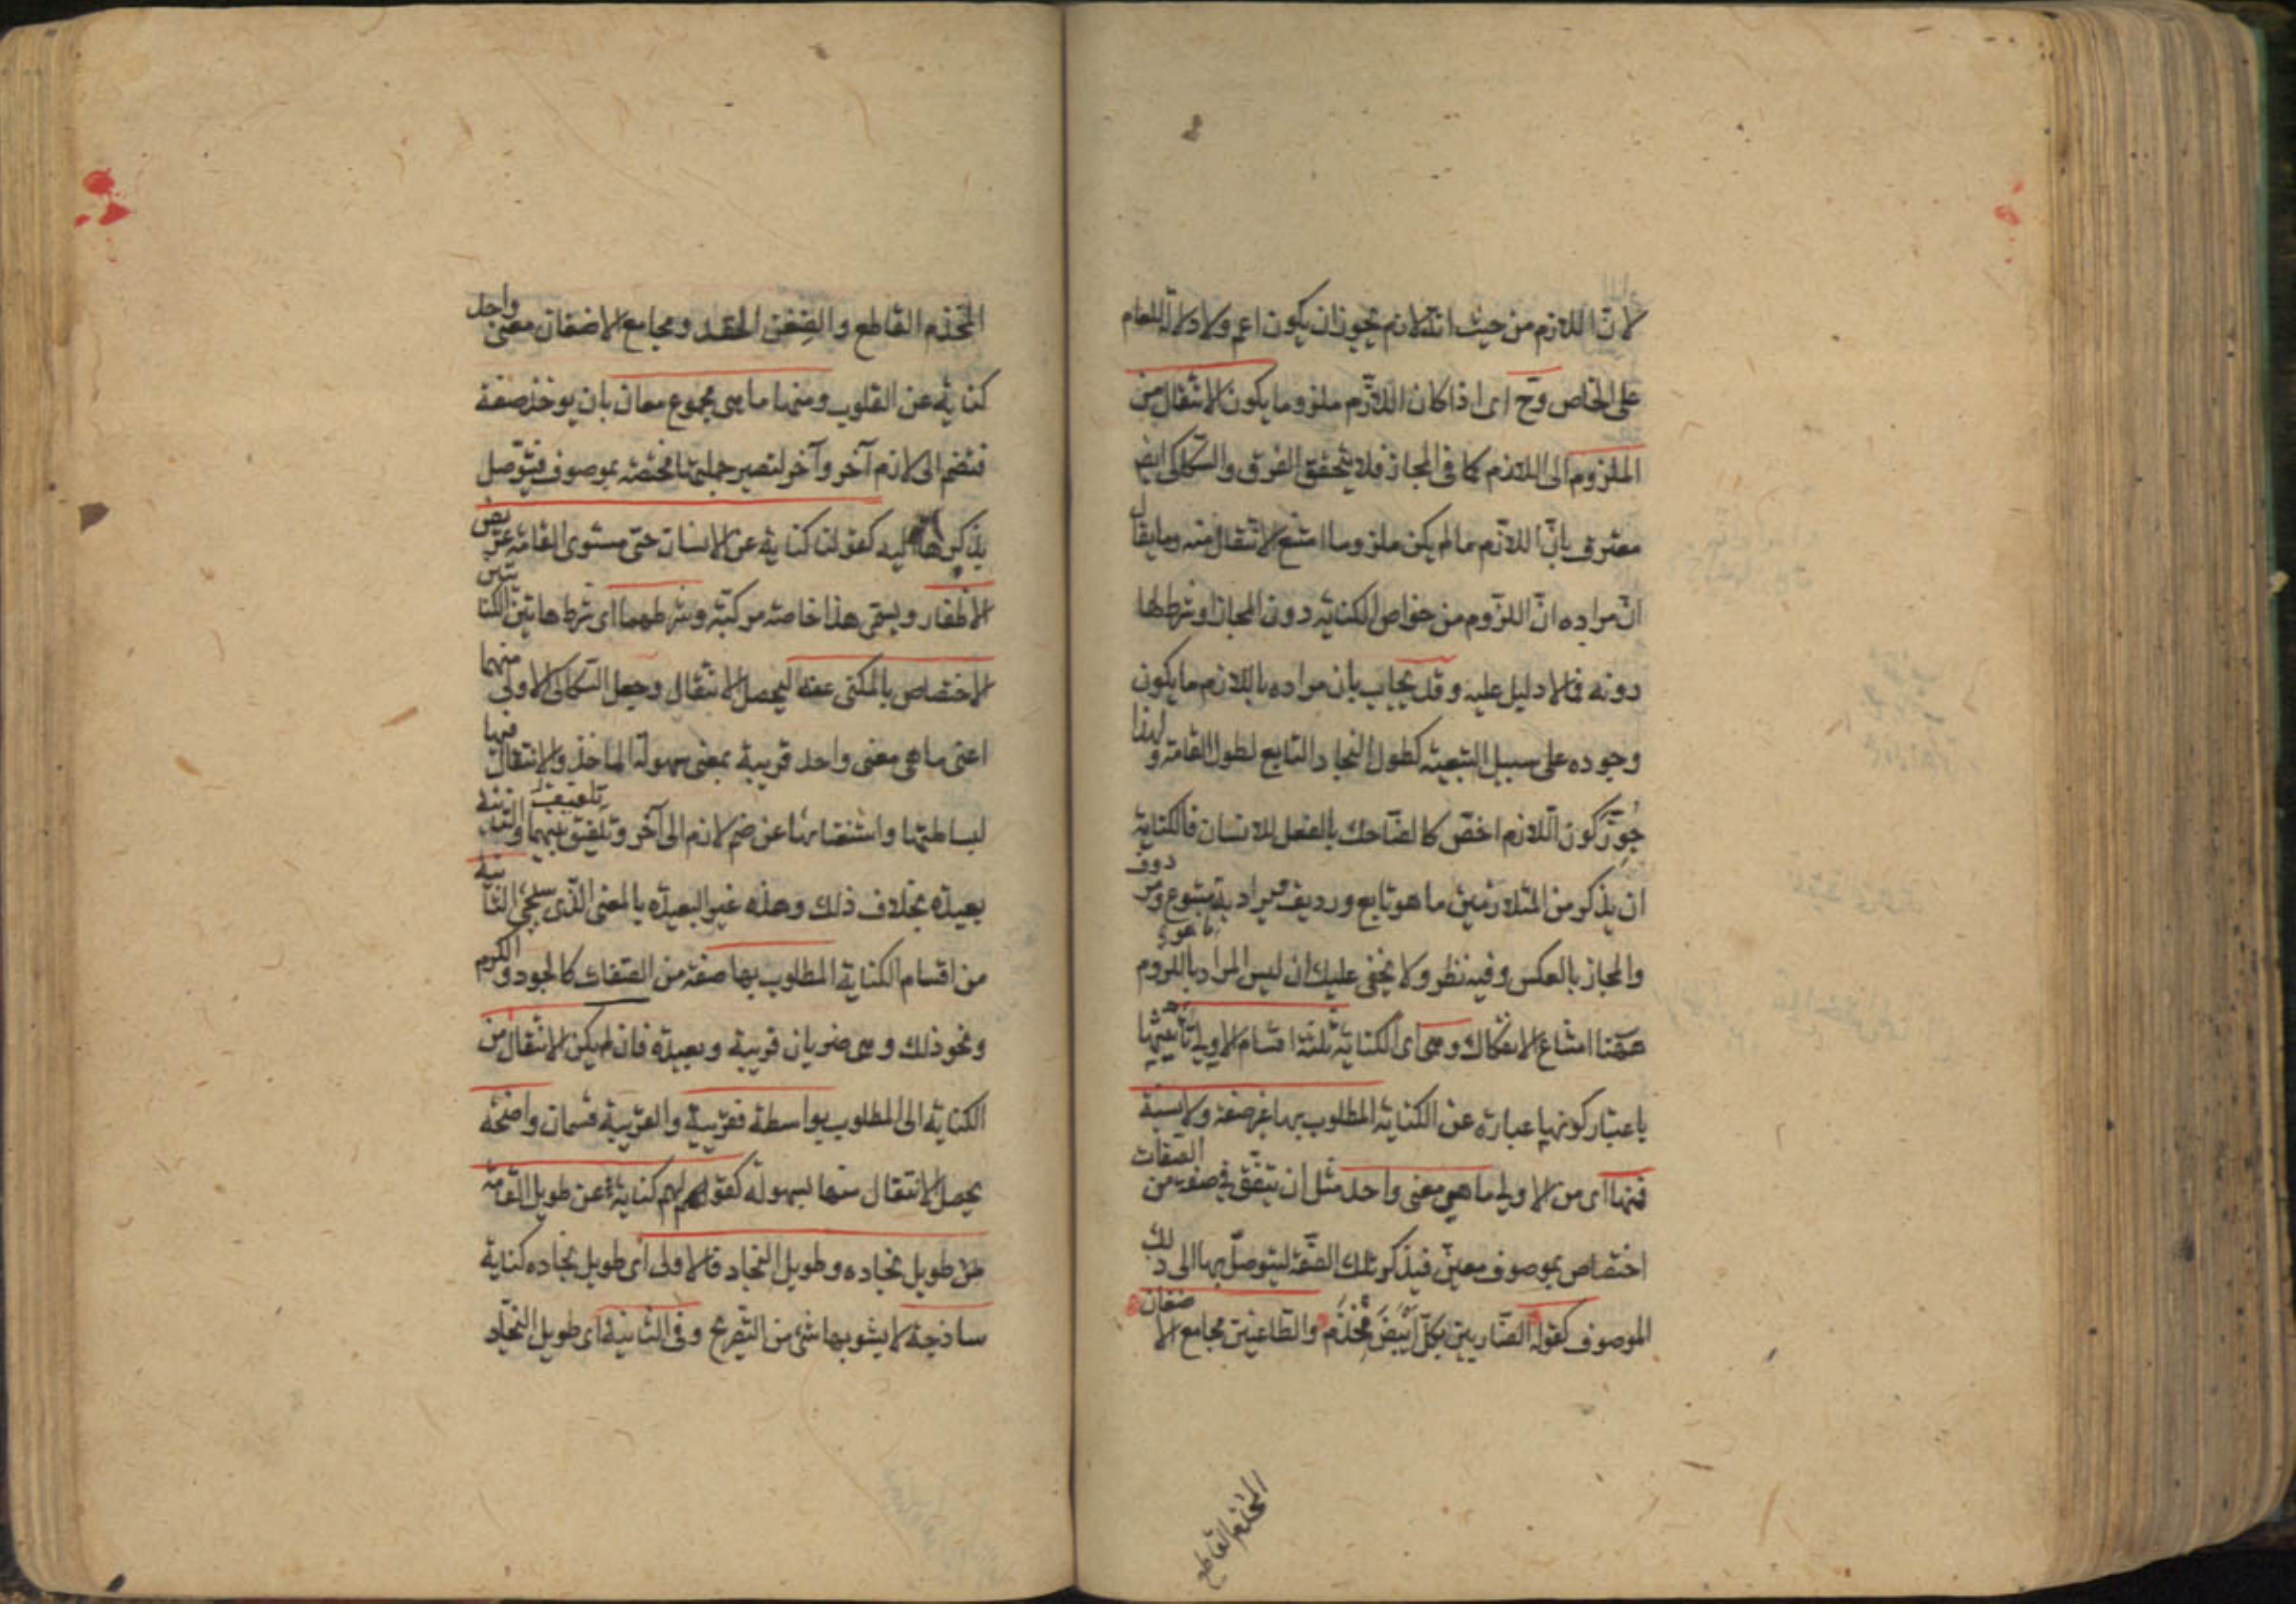 لان اللازم من حيث انه لازم يجوز ان يكون اعم ولا دلالة للعام
على الخاص وح اى اذا كان اللازم ملزوما يكون الانتقال من
الملزوم الى اللازم كما فى المجاز فلا يتحقق الفرق والسكاكى ايض
معترف بانّ اللازم ما لم يكن ملزوما امتنع الانتقال منه وما يقال
انّ مراده انّ اللزوم من خواص الكناية دون المجاز او شرط لها
دونه فلا دليل عليه وقد يجاب بان مراده باللازم ما يكون
وجوده على سبيل التبعية كطول النجاد التابع لطول القامة ولهذا
جوّز كون اللازم اخصّ كالضّاحك بالفعل للانسان فالكناية
ان يذكر من المتلازمين ما هو تابع ورديف ويراد به ما هو متبوع ومردوف
والمجاز بالعكس وفيه نظر ولا يخفى عليك ان ليس المراد باللزوم
ههنا امتناع الانفكاك وهى اى الكناية ثلثة اقسام الاولى تأنيثها
باعتبار كونها عبارة عن الكناية المطلوب بها غير صفة ولا نسبة
فمنها اى من الاولى ما هى معنى واحد مثل ان يتفق فى صفة من الصفات
اختصاص بموصوف معيّن فيذكر تلك الصّفة ليتوصل بها الى ذلك
الموصوف كقوله الضّاربين بكلّ أبيضَ مُخْذَمٍ والطّاعنين مجامع الاضغان
المخذم القاطع
المخذم القاطع والضِغْن الحقد ومجامع الاضغان معنى واحد
كناية عن القلوب ومنها ما هى مجموع معان بان يوخذ صفة
فتضم الى لازم آخر وآخر لتصير جملتها مختصة بموصوف فيتوصل
بذكرها اليه كقولنا كناية عن الانسان حىّ مستوى القامة عريض
الاظفار ويسمى هذا خاصة مركبّة وشرطهما اى شرط هاتين الكنايتين
الاختصاص بالمكنى عنه ليحصل الانتقال وجعل السّكاكى الاولى منهما
اعنى ما هى معنى واحد قريبة بمعنى سهولة الماخذ والانتقال فيها
لبساطتها واستغنائها عن ضم لازم الى آخر وتلفيق بينهما والثانية
بعيدة بخلاف ذلك وهذه غير البعيدة بالمعنى الذى سيجئ الثانية
من اقسام الكناية المطلوب بها صفة من الصّفات كالجود والكرم
ونحو ذلك وهى ضربان قريبة وبعيدة فان لم يكن الانتقال من
الكناية الى المطلوب بواسطة فقريبة والقريبة قسمان واضحة
يحصل الانتقال منها بسهولة كقولهم كناية عن طويل القامة
طويل نجاده وطويل النجاد فالاولى اى طويل نجاده كناية
ساذجة لا يشوبها شئ من التّصريح وفى الثانية اى طويل النجّاد